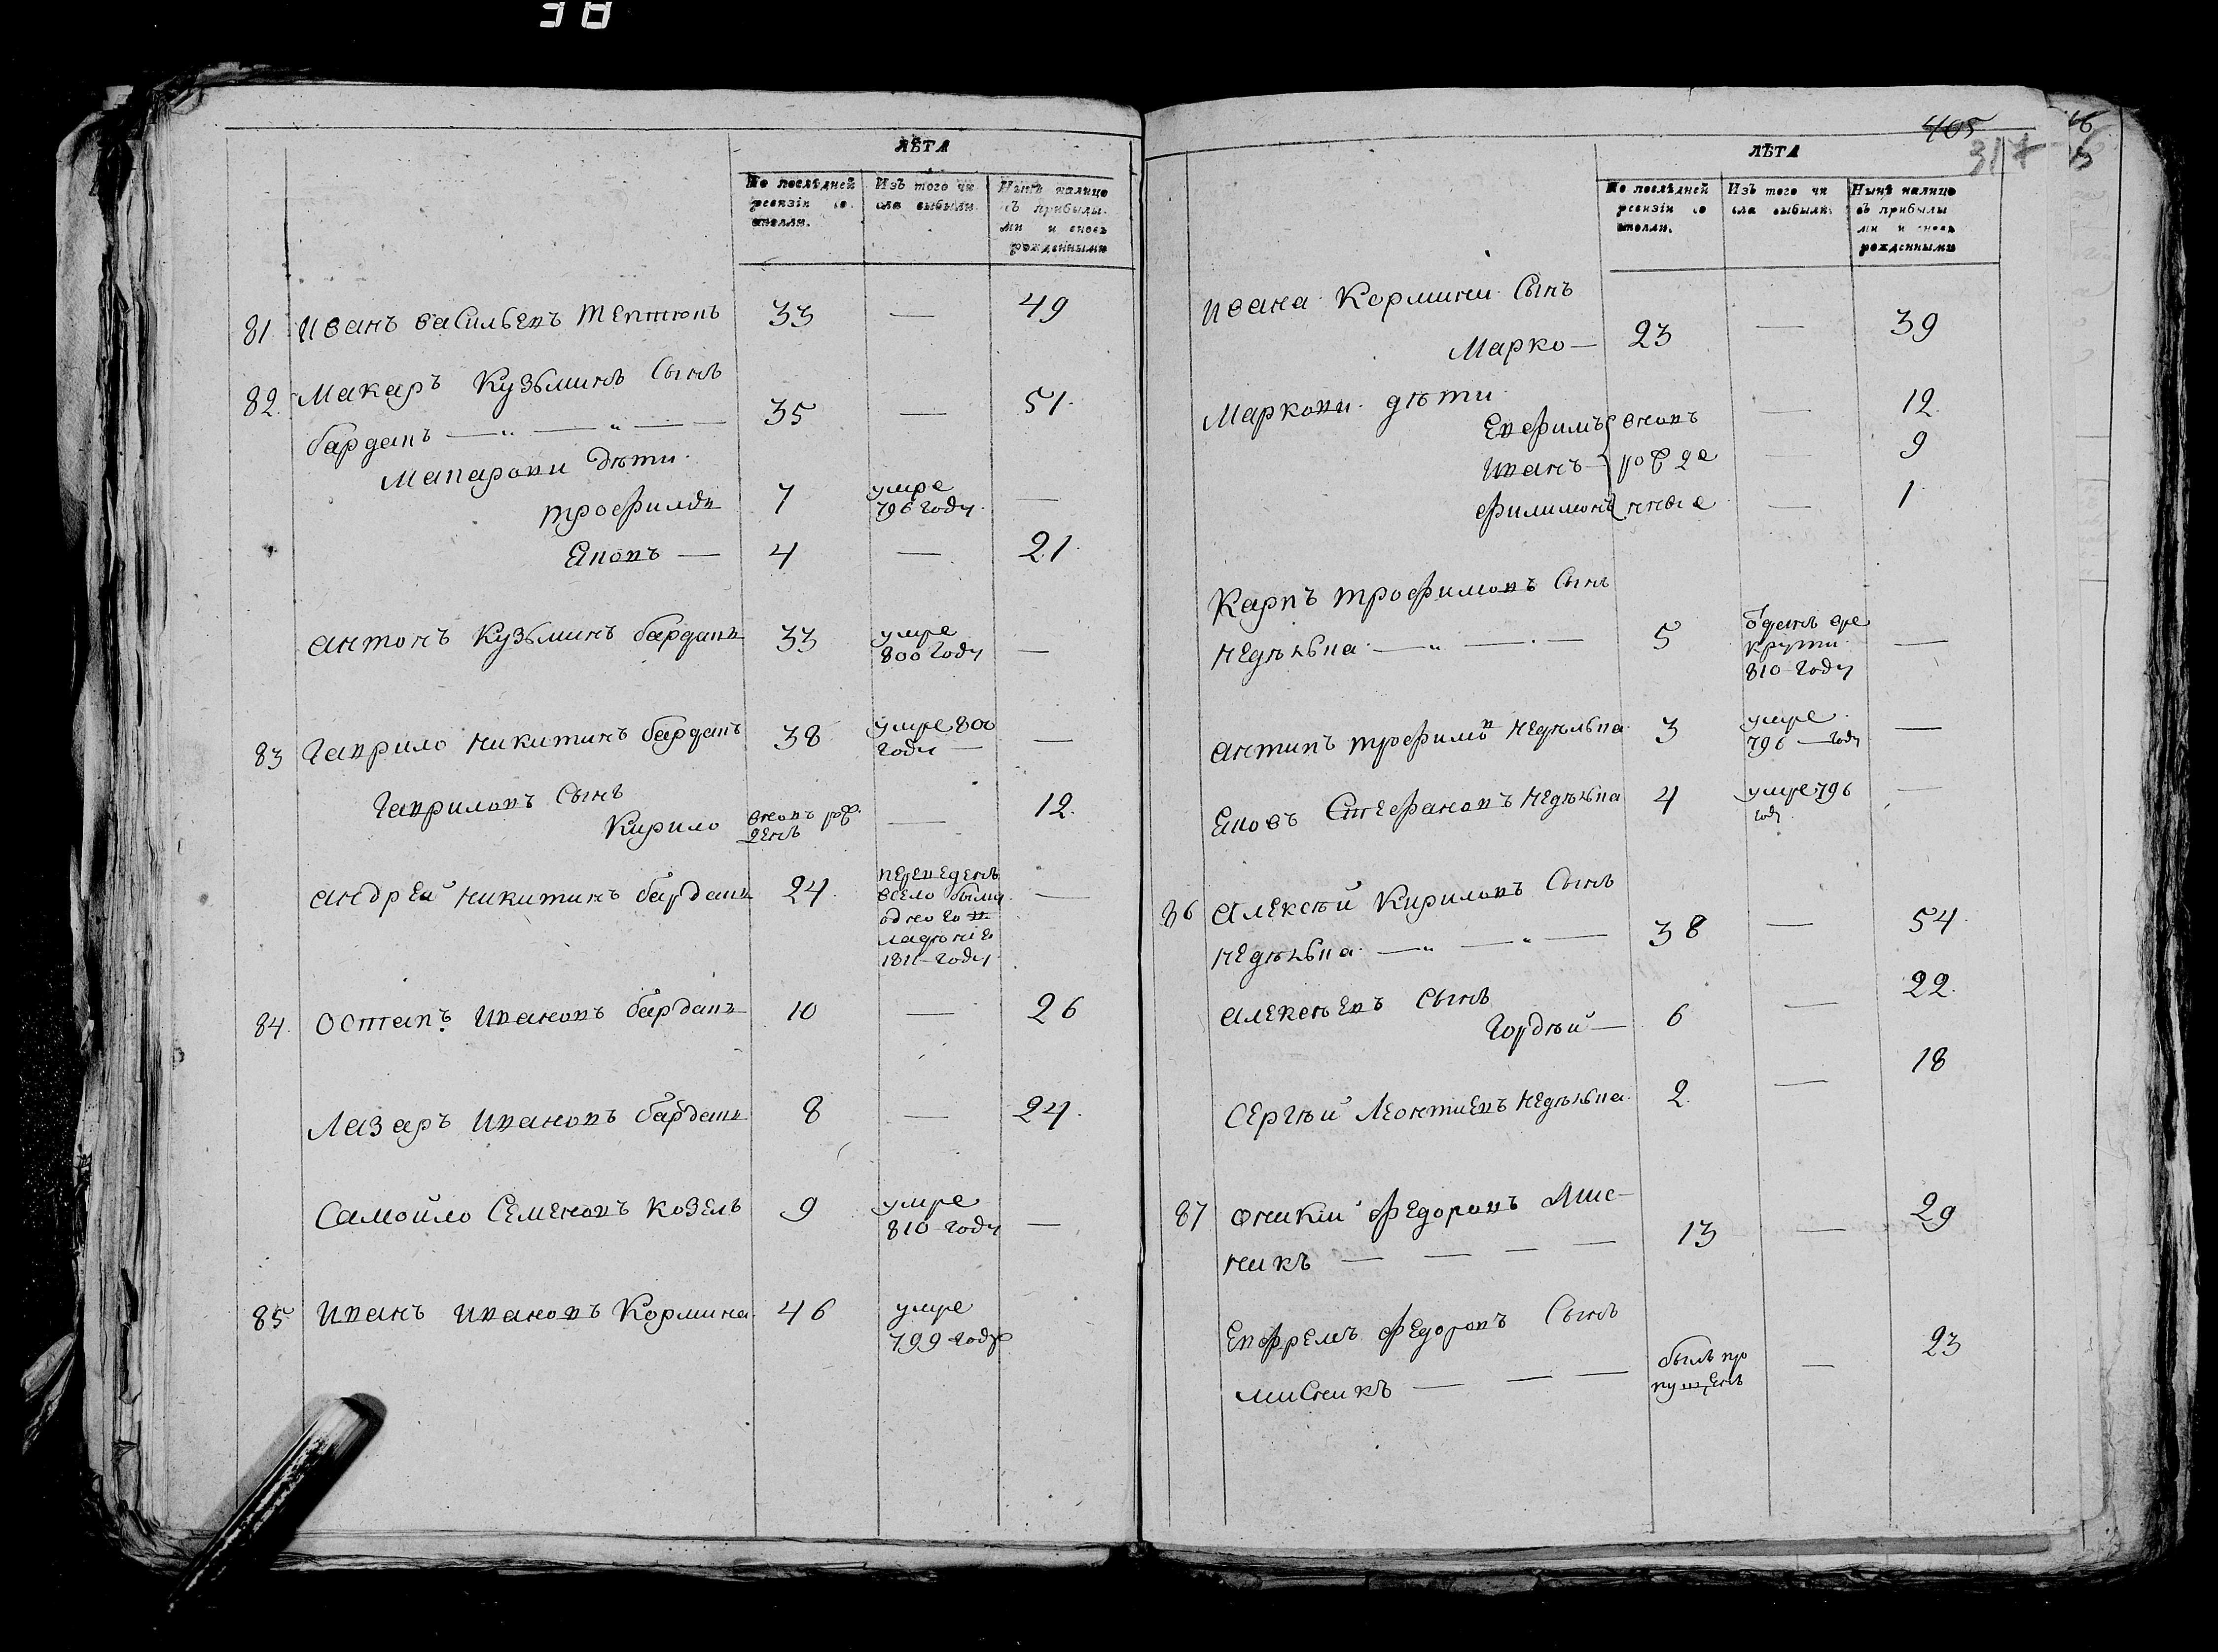 38
ЛѢТА
По послѣдней
ревизіи со
стояли.
Изъ того чи
сла выбыли
Нынѣ налицо
съ прибылы-
ми и вновь
рожденными
81 Иванъ васильевъ 33 — 49
82. Макаръ Кузьминъ Сынъ
бардапъ — „ — „ — — 35 — 51.
Макарови дѣти.
трофимъ 7 умре
796 году. —
Яковъ — 4 — 21.
антонъ Кузьминъ бардапъ 33 умре
800 году —
83 Гаврило никитинъ бардапъ 38 умре 800
году — —
Гавриловъ Сынъ
Кирило вновь рож
денъ — 12.
андрей никитинъ бардапъ 24. переведенъ
всело
одного в
ладѣнiе
1811 году. —
84. Остапъ Ивановъ бардапъ 10 — 26
Лазаръ Ивановъ бардапъ 8 — 24.
Самойло Семеновъ козелъ 9 умре
810 году —
85 Иванъ Ивановъ Кормина. 46 умре
799 году
405
317
ЛѢТА
По послѣдней
ревизіи со
стояли.
Изъ того чи
сла выбыли.
Нынѣ налицо
съ прибылы
ми и вновь
рожденными
Ивана Кормини Сынъ
Марко — 23 — 39
Маркови дѣти
Евфимъ вновь — 12.
Иванъ — рожде — 9
филимонъ нные — 1.
Карпъ трофимовъ Сынъ
недѣлька — „ — — 5 отданъ вре
крути
810 году —
антипъ трофимовъ недѣлька. 3 умре
796 — году —
Яковъ Стефановъ недѣлька 4 умре 796
году —
86 Алексѣй Кириловъ Сынъ
недѣлька. — „ — „ — 38 — 54.
алексѣевъ Сынъ
Гордѣй — 6 — 22.
Сергѣй Леонтиевъ недѣлька. 2. — 18
87 Оникий федоровъ Мис-
никъ — — — — 13 — 29
Евфремъ федоровъ Сынъ
мисникъ — — — былъ про
пущенъ — 23